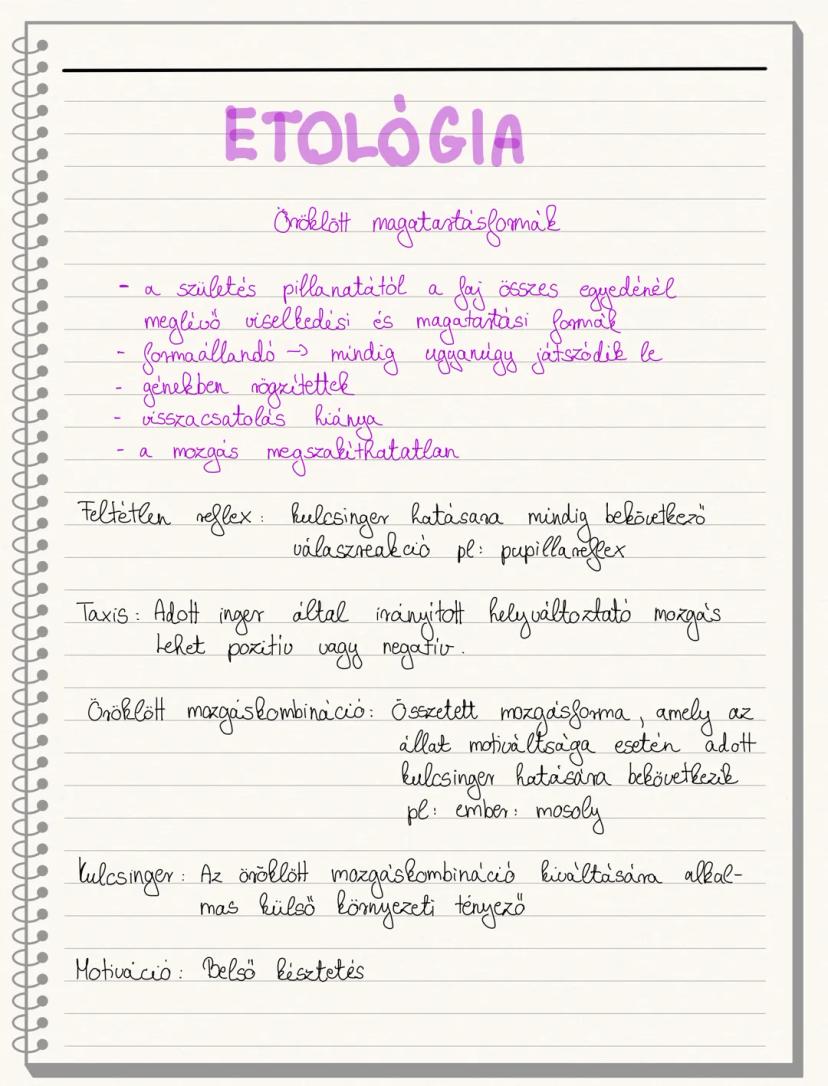 ETOLÓGIA
Öröklött magatartásformák
- a születés pillanatától a faj összes egyedénél
meglévő viselkedési és magatartási formák
- formaállandó → mindig ugyanúgy játszódik le
- génekben rögzítettek
- visszacsatolás hiánya
- a mozgás megszakíthatatlan
Feltétlen reflex: kulcsinger hatásara mindig bekövetkező
válaszreakció pl: pupillareflex
Taxis: Adott inger által irányított helyváltoztató mozgás
Lehet pozitív vagy negatív.
Öröklött mozgáskombináció: Összetett mozgásforma, amely az
állat motiváltsága esetén adott
kulcsinger hatására bekövetkezik
pl: ember: mosoly
Kulcsinger: Az öröklött mozgáskombináció kiváltására alkal-
mas külső környezeti tényező
Motiváció: Belső késztetés